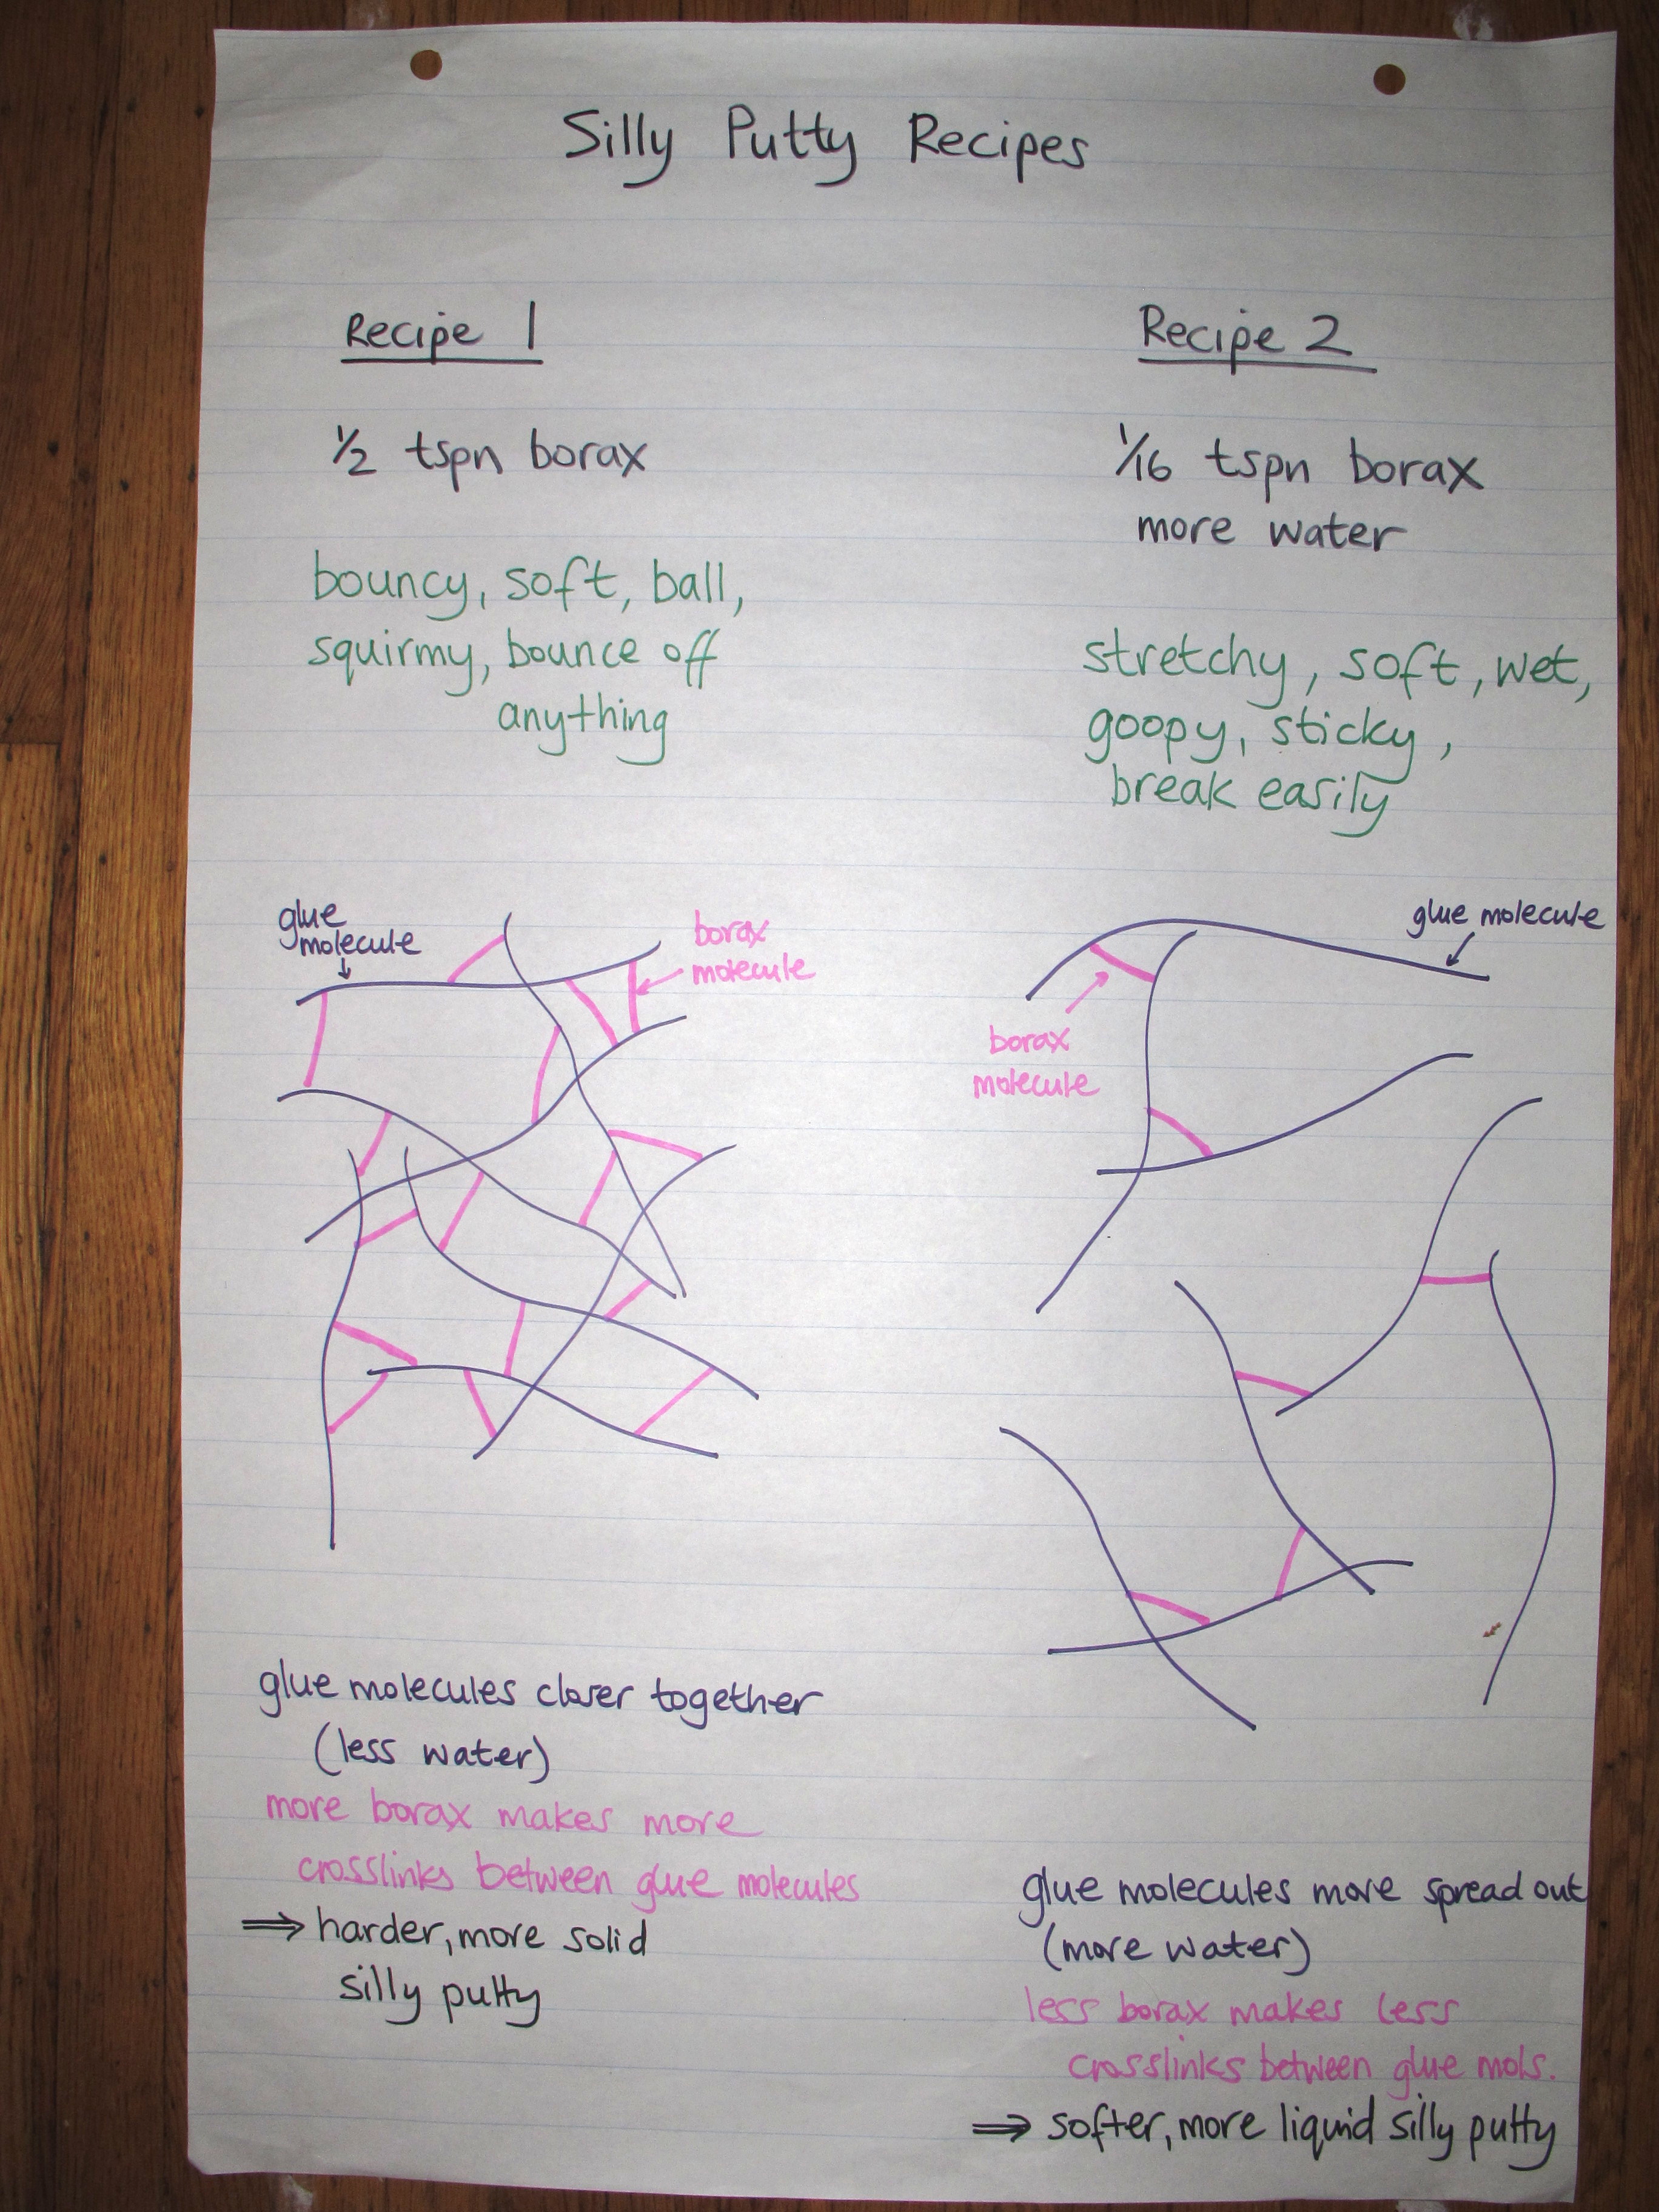 Silly Putty Recipes
Recipe 1
1/2 tspn borax
bouncy, soft, ball,
squirmy, bounce off
anything
glue
molecule
borax
molecule
glue molecules closer together
(less water)
more borax makes more
crosslinks between glue molecules
⇒ harder, more solid
silly putty
Recipe 2
1/16 tspn borax
more water
stretchy, soft, wet,
goopy, sticky,
break easily
glue molecule
borax
molecule
glue molecules more spread out
(more water)
less borax makes less
crosslinks between glue mols.
⇒ softer, more liquid silly putty